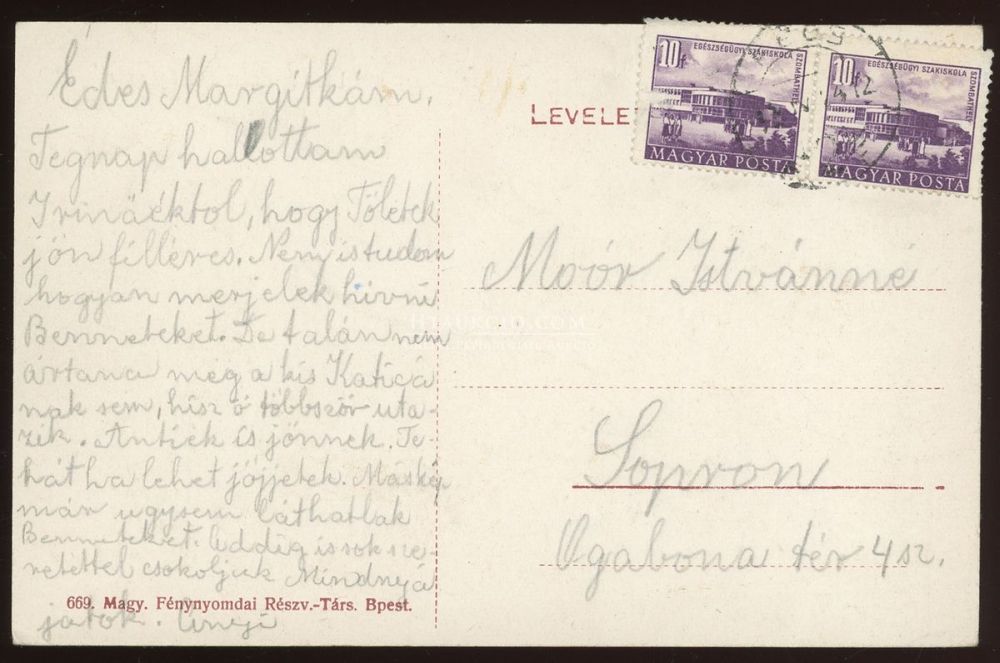 Édes Margitkám.
Tegnap hallottam
Irináéktol, hogy Töletek
jön filléres. Nem is tudom
hogyan merjelek hívni
Benneteket. De talán nem
ártana meg a kis Katicá
nak sem, hisz ó többször uta-
zik. Antiek is jönnek. Te-
hát ha lehet jöjjetek. Máskép
már ugysem láthatlak
Benneteket. Addig is sok sze-
retettel csokoljuk Mindnyá
jatok.
669. Magy. Fénynyomdai Részv.-Társ. Bpest.
LEVELE
10f
EGÉSZSÉGÜGYI SZAKISKOLA
SZOMBATHELY
MAGYAR POSTA
10f
EGÉSZSÉGÜGYI SZAKISKOLA
SZOMBATHELY
MAGYAR POSTA
Moór Istvánné
Sopron
Ogabona tér 4 sz.